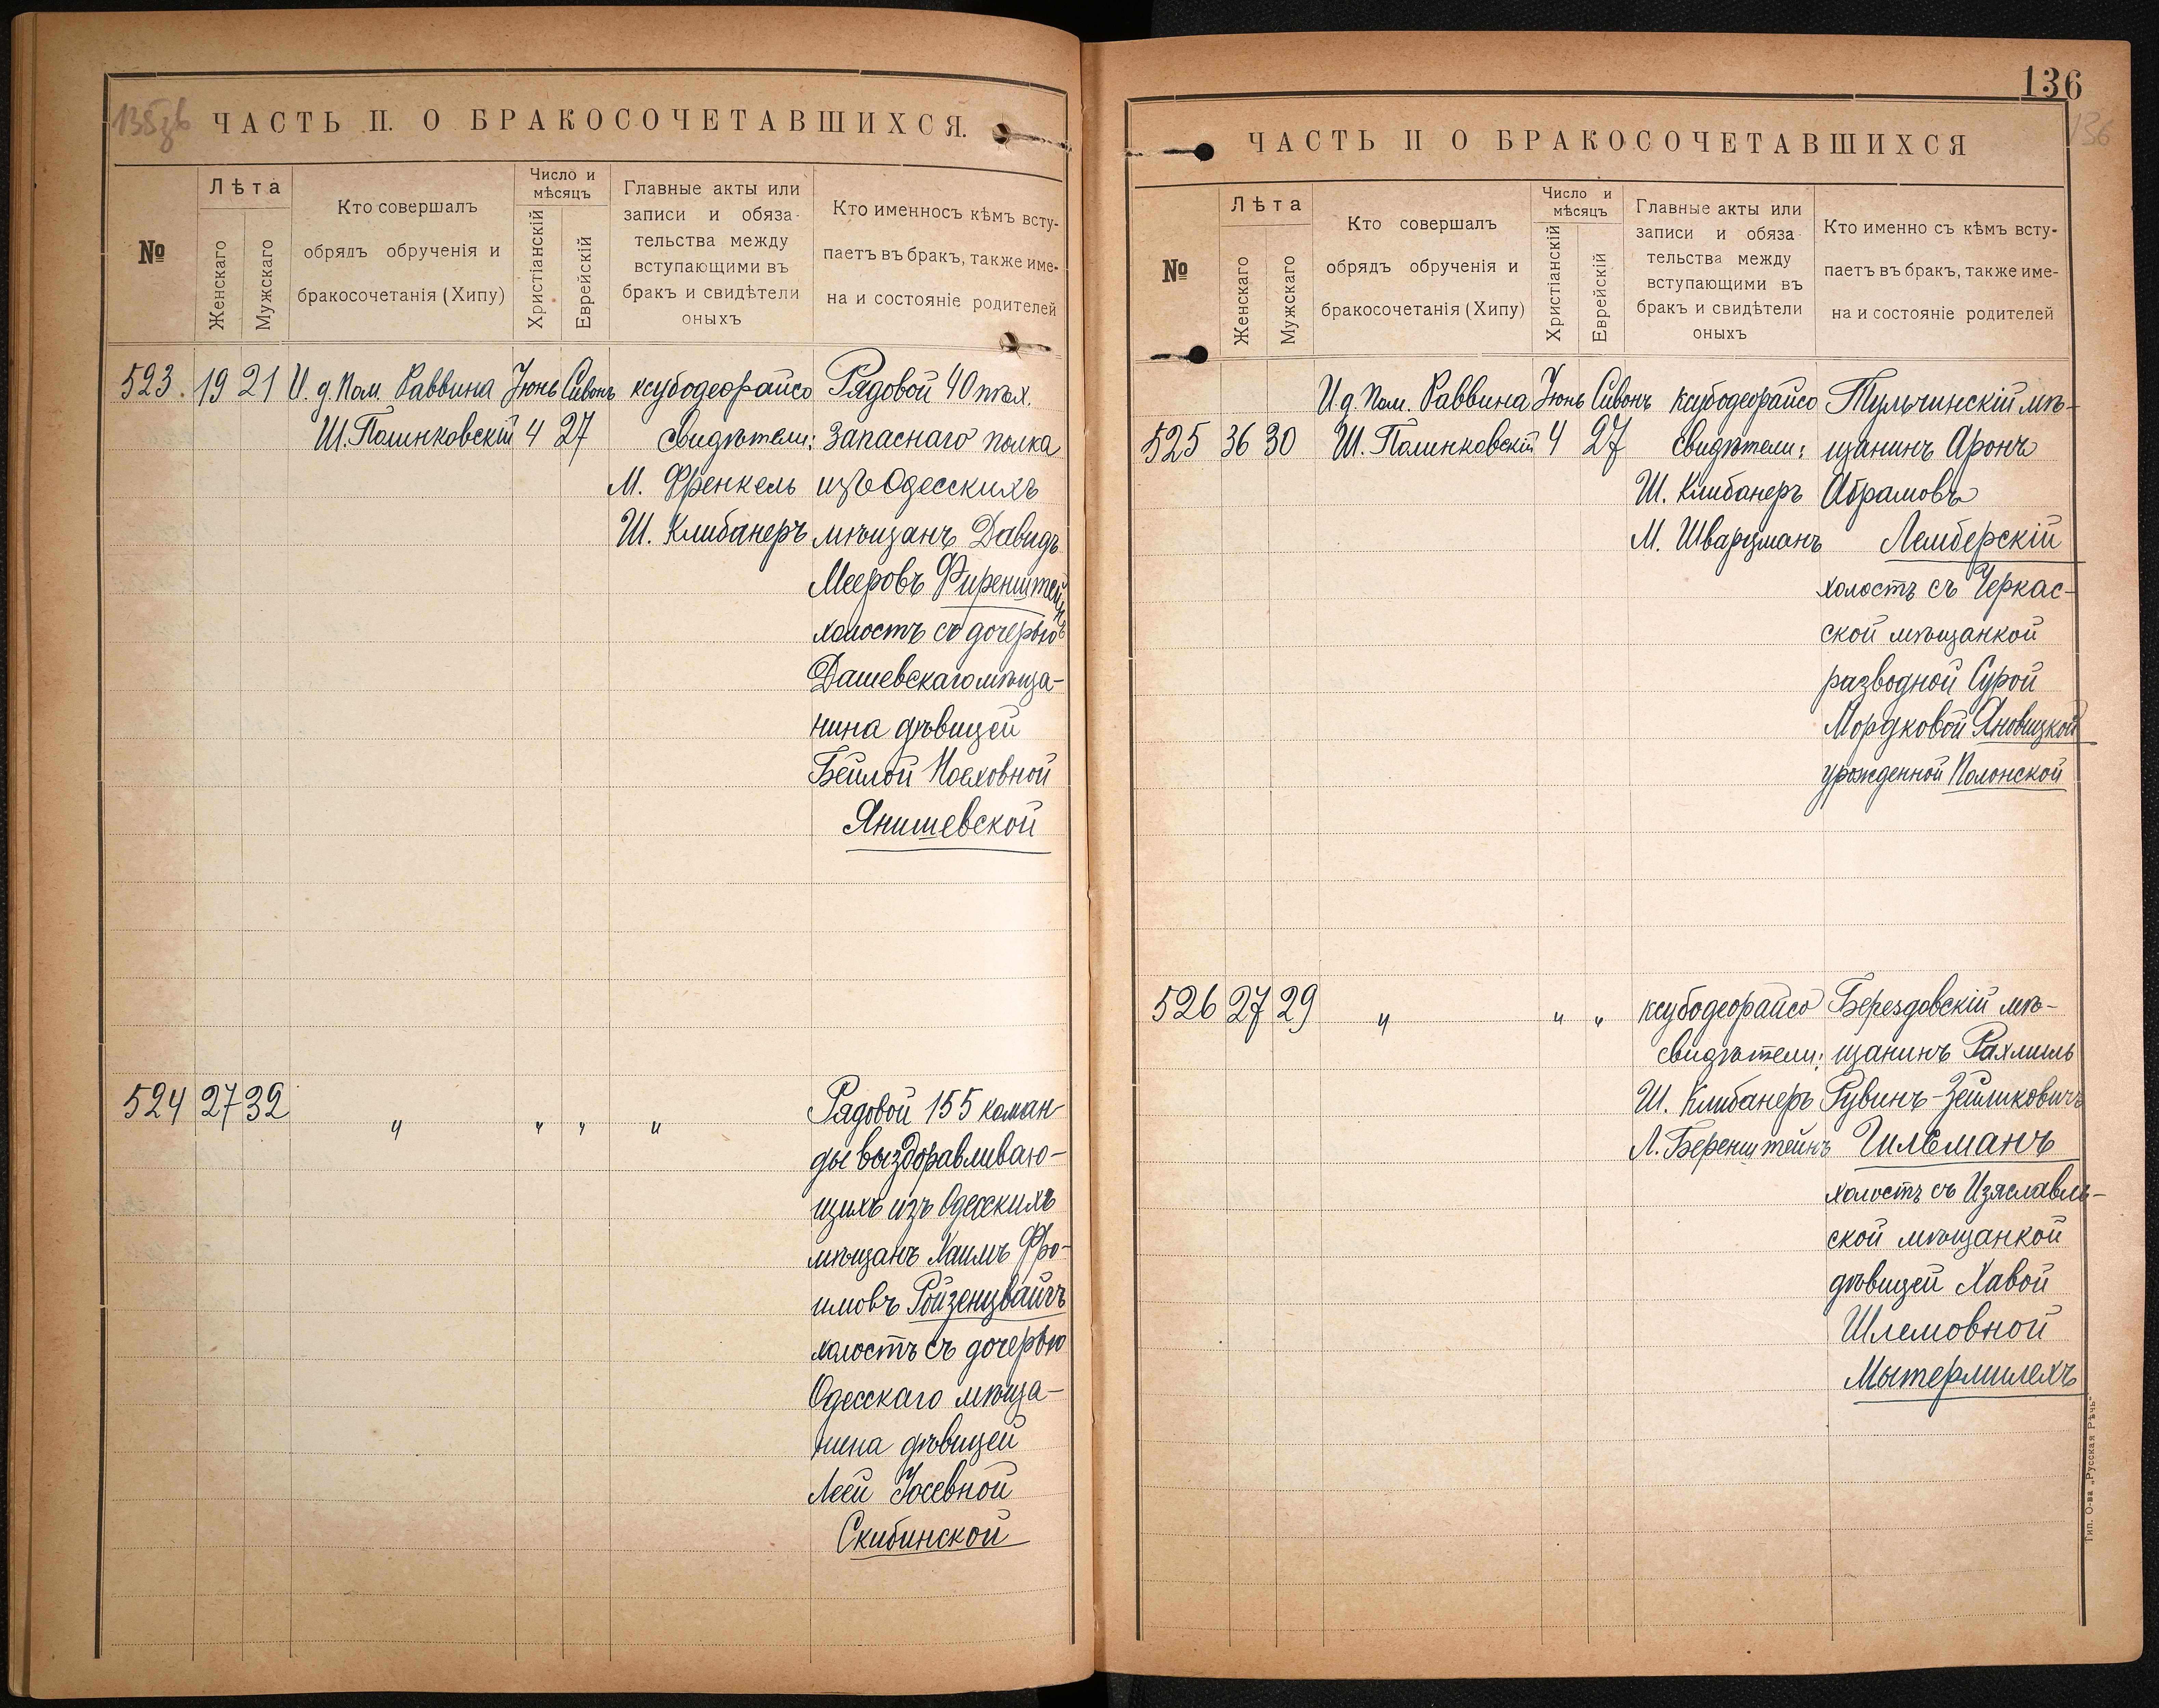 135зв
ЧАСТЬ II. О БРАКОСОЧЕТАВШИХСЯ.
№
Лѣта
Женскаго
Мужскаго
Кто совершалъ
обрядъ обрученія и
бракосочетанія (Хипу)
Число и
мѣсяцъ
Христіанскій
Еврейскій
Главные акты или
записи и обяза-
тельства между
вступающими въ
бракъ и свидѣтели
оныхъ
Кто именносъ кѣмъ всту-
паетъ въ бракъ, также име-
на и состояніе родителей
523. 19 21 И. д. Пом. Раввина Іюнь Сивонъ ксубодеорайсо Рядовой 40 пѣх.
Ш. Полинковскій 4 27 свидѣтели: запаснаго полка
М. Френкель изъ Одесскихъ
Ш. Клибанеръ мѣщанъ Давидъ
Мееровъ Фиренштейнъ
холостъ съ дочерью
Дашевскаго мѣща-
нина дѣвицей
Бейлой Іосиовной
Янишевской
524 27 32 " " " " Рядовой 155 коман-
ды выздоравливаю-
щихъ изъ Одесскихъ
мѣщанъ Хаимъ Фро-
имовъ Ройзенцвайгъ
холостъ съ дочерью
Одесскаго мѣща-
нина дѣвицей
Леей Іосевной
Скибинской
136
136
ЧАСТЬ II О БРАКОСОЧЕТАВШИХСЯ
№
Лѣта
Женскаго
Мужскаго
Кто совершалъ
обрядъ обрученія и
бракосочетанія (Хипу)
Число и
мѣсяцъ
Христіанскій
Еврейскій
Главные акты или
записи и обяза
тельства между
вступающими въ
бракъ и свидѣтели
оныхъ
Кто именно съ кѣмъ всту-
паетъ въ бракъ, также име-
на и состояніе родителей
И д. Пом. Раввина Іюнь Сивонъ ксубодеорайсо Тульчинскій мѣ-
525 36 30 Ш. Полинковскій 4 27 свидѣтели: щанинъ Аронъ
Ш. Клибанеръ Абрамовъ
М. Шварцманъ Лемберскій
холостъ съ Черкас-
ской мѣщанкой
разводной Сурой
Мордковой Яновицкой
урожденной Полонской
526 27 29 " " " ксубодеорайсо Берездовскій мѣ-
свидѣтели: щанинъ Рахмиль
Ш. Клибанеръ Рувинъ-Зейликовичъ
Л. Беренштейнъ Гильманъ
холостъ съ Изяславль-
ской мѣщанкой
дѣвицей Хавой
Шлемовной
Мытермилехъ
Тип. О-ва „Русская Рѣчь"